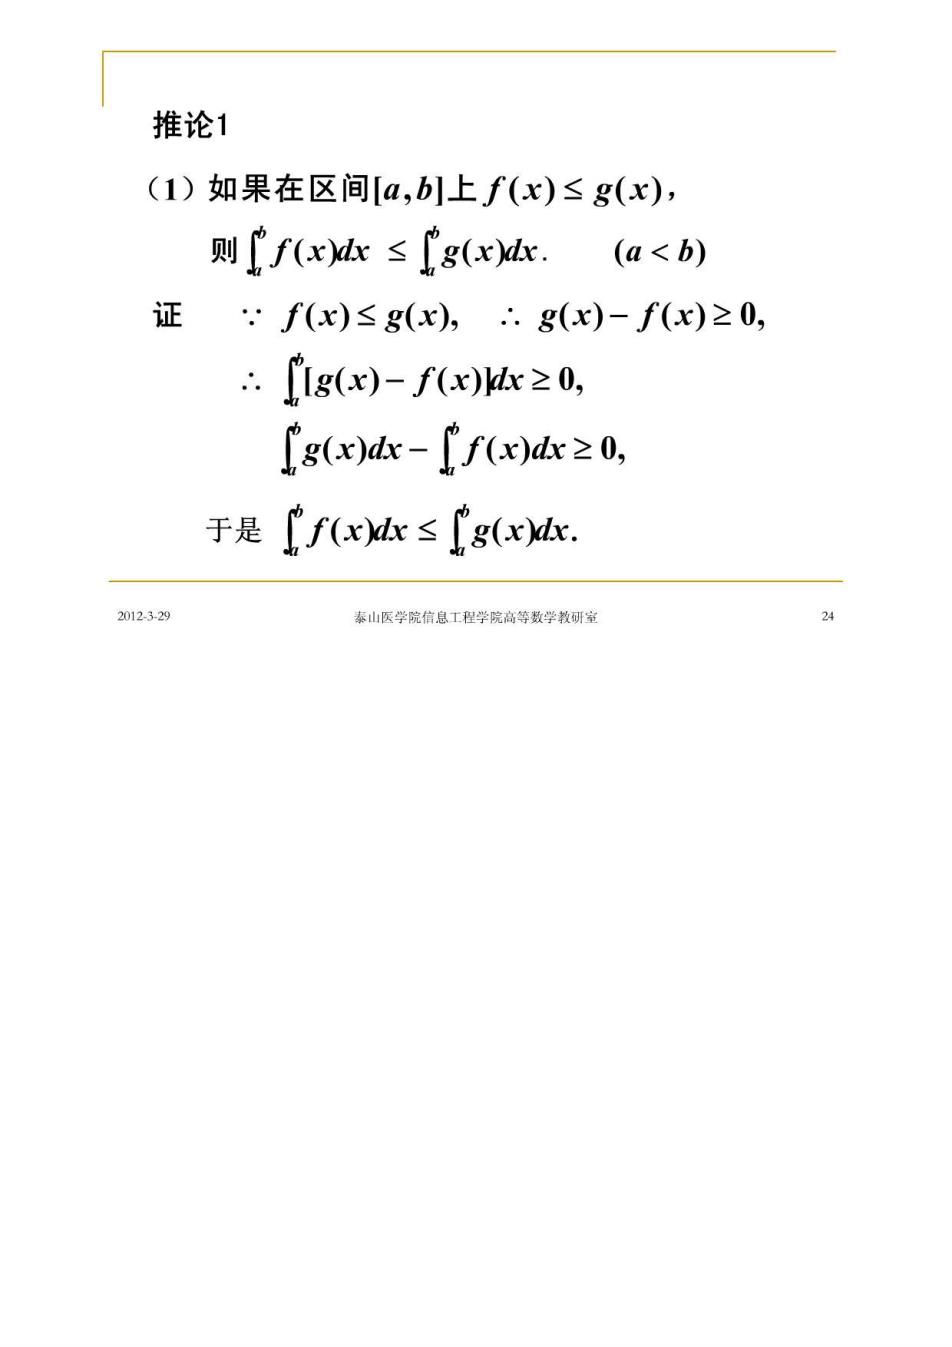 推论1
（1）如果在区间[a,b]上 f(x) ≤ g(x)，
则∫_a^b f(x)dx ≤ ∫_a^b g(x)dx. (a < b)
证 ∵ f(x) ≤ g(x), ∴ g(x) − f(x) ≥ 0,
∴ ∫_a^b [g(x) − f(x)]dx ≥ 0,
∫_a^b g(x)dx − ∫_a^b f(x)dx ≥ 0,
于是 ∫_a^b f(x)dx ≤ ∫_a^b g(x)dx.
2012-3-29 泰山医学院信息工程学院高等数学教研室 24